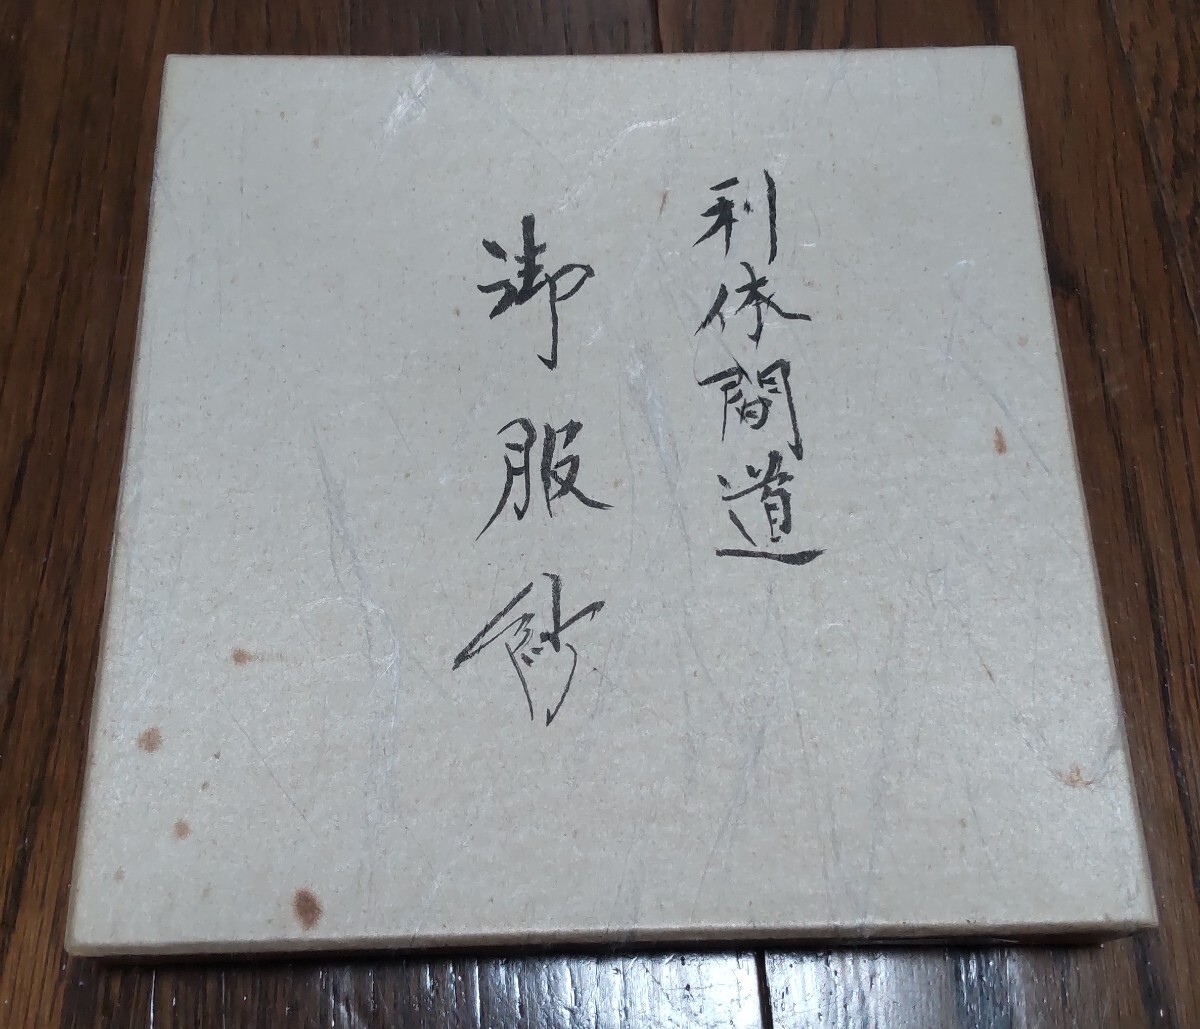 利休間道
御服紗